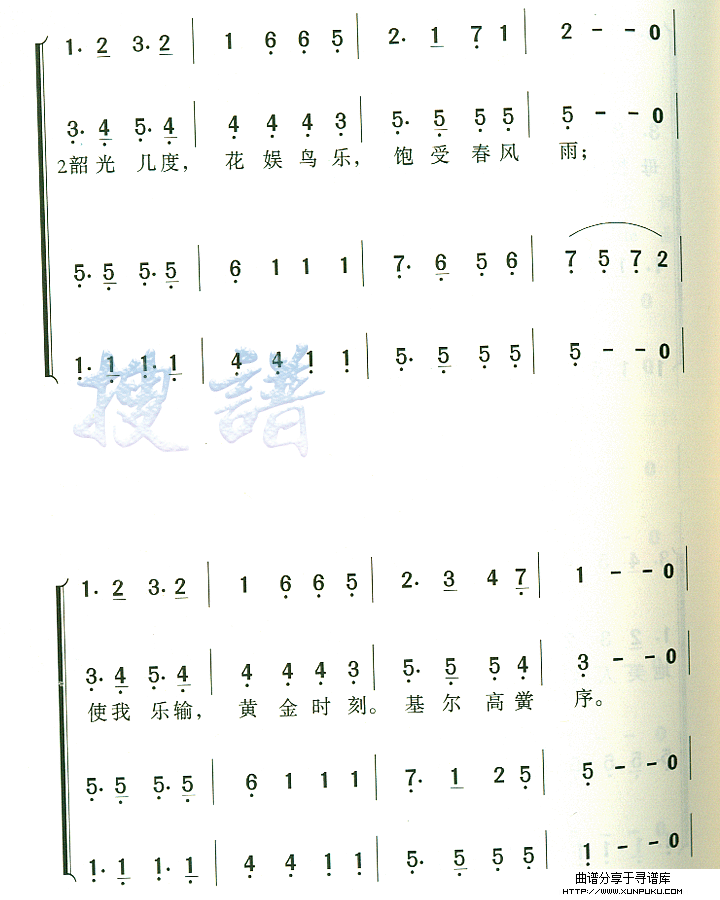 1. 2 3. 2 | 1 6 6 5 | 2. 1 7 1 | 2 - - 0
3. 4 5. 4 | 4 4 4 3 | 5. 5 5 5 | 5 - - 0
2韶光 几度, 花娱鸟乐, 饱受春风 雨;
5. 5 5. 5 | 6 1 1 1 | 7. 6 5 6 | 7 5 7 2
1. 1 1. 1 | 4 4 1 1 | 5. 5 5 5 | 5 - - 0
搜譜
1. 2 3. 2 | 1 6 6 5 | 2. 3 4 7 | 1 - - 0
3. 4 5. 4 | 4 4 4 3 | 5. 5 5 4 | 3 - - 0
使我 乐输, 黄金时刻。 基尔高黉 序。
5. 5 5. 5 | 6 1 1 1 | 7. 1 2 5 | 5 - - 0
1. 1 1. 1 | 4 4 1 1 | 5. 5 5 5 | 1 - - 0
曲谱分享于寻谱库
HTTP://WWW.XUNPUKU.COM